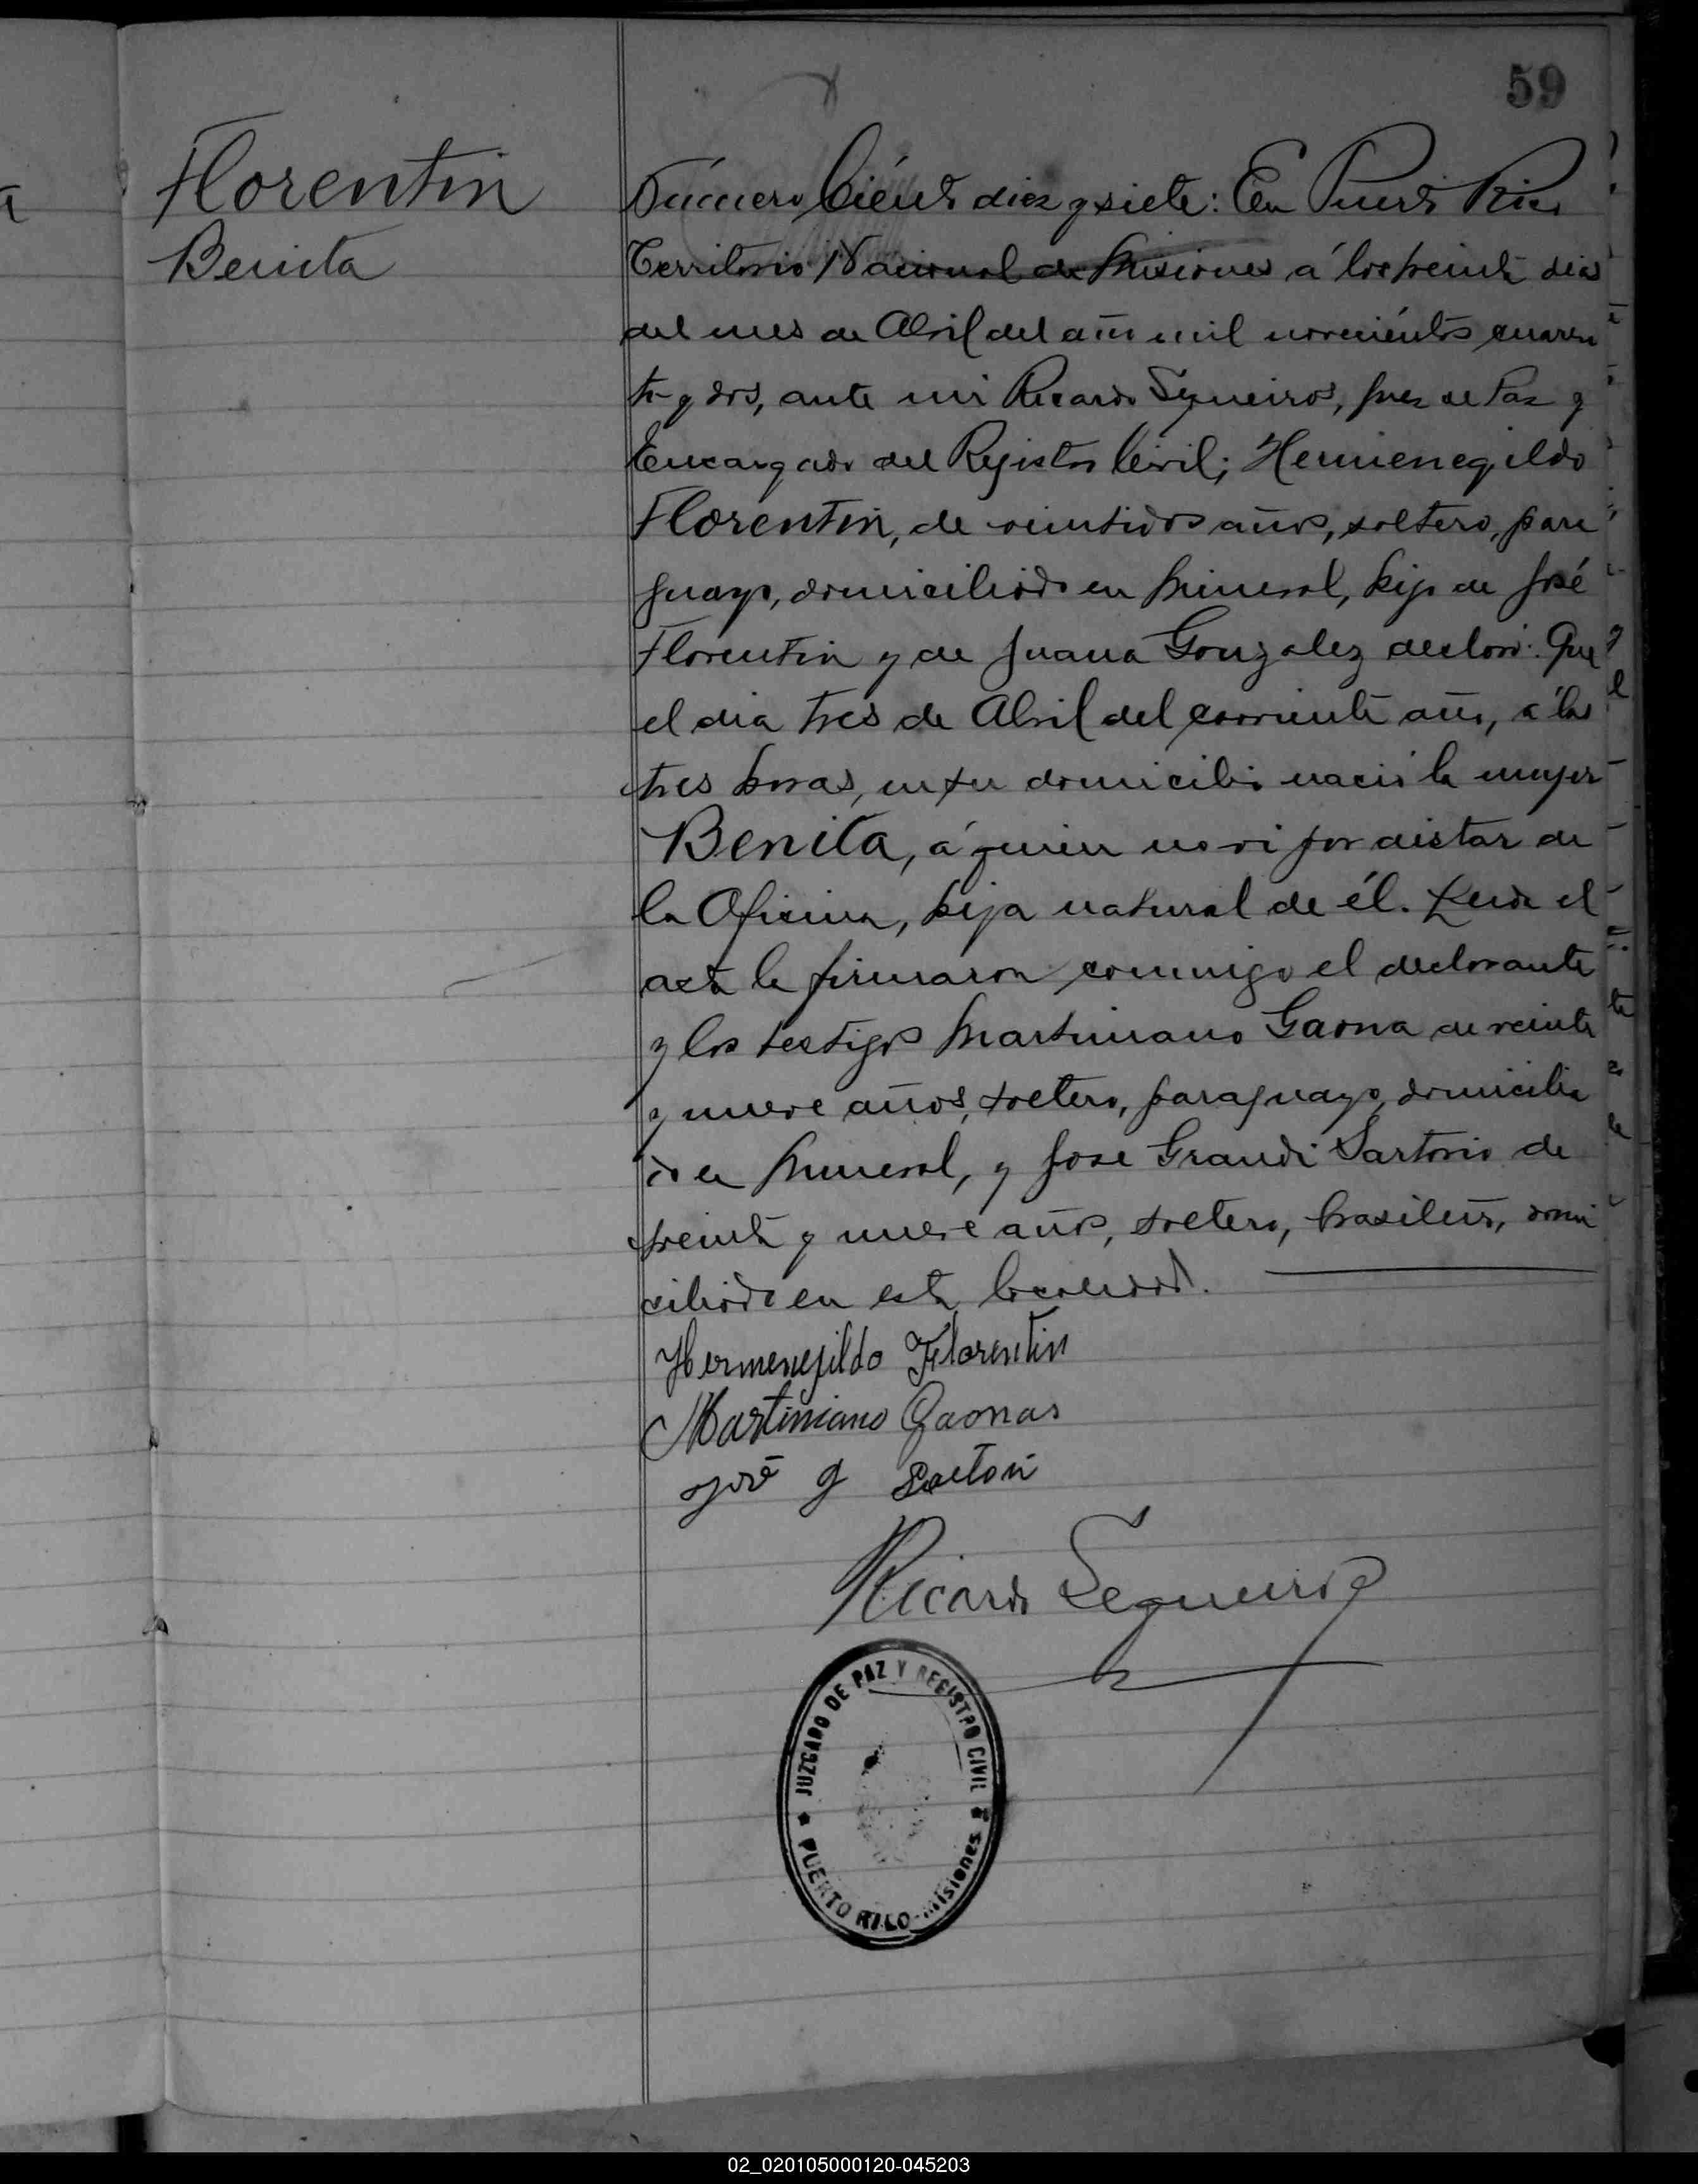 59
Florentin
Benita
Número Ciento diez y siete: En Puerto Rico
Territorio Nacional de Misiones á los treinta dias
del mes de Abril del año mil novecientos cuaren
ta y dos, ante mi Ricardo Sequeiros, Juez de Paz y
Encargado del Registro Civil; Hermenegildo
Florentin, de veintidos años, soltero, para
guayo, domiciliado en Mineral, hijo de José
Florentin y de Juana Gonzalez declaró: Que
el dia tres de Abril del corriente año, á las
tres horas, en su domicilio nació la mujer
Benita, á quien no vi por distar de
la Oficina, hija natural de él. Leida el
acta la firmaron conmigo el declarante
y los testigos Martiniano Gaona de veinte
y nueve años, soltero, paraguayo, domicilia
do en Mineral, y Jose Grandi Sartorio de
treinta y nueve años, soltero, brasilero, domi
ciliado en esta localidad.
Hermenejildo Florentin
Martiniano Gaonas
José G Sartori
Ricardo Sequeiros
JUZGADO DE PAZ Y REGISTRO CIVIL
PUERTO RICO - Misiones
02_020105000120-045203